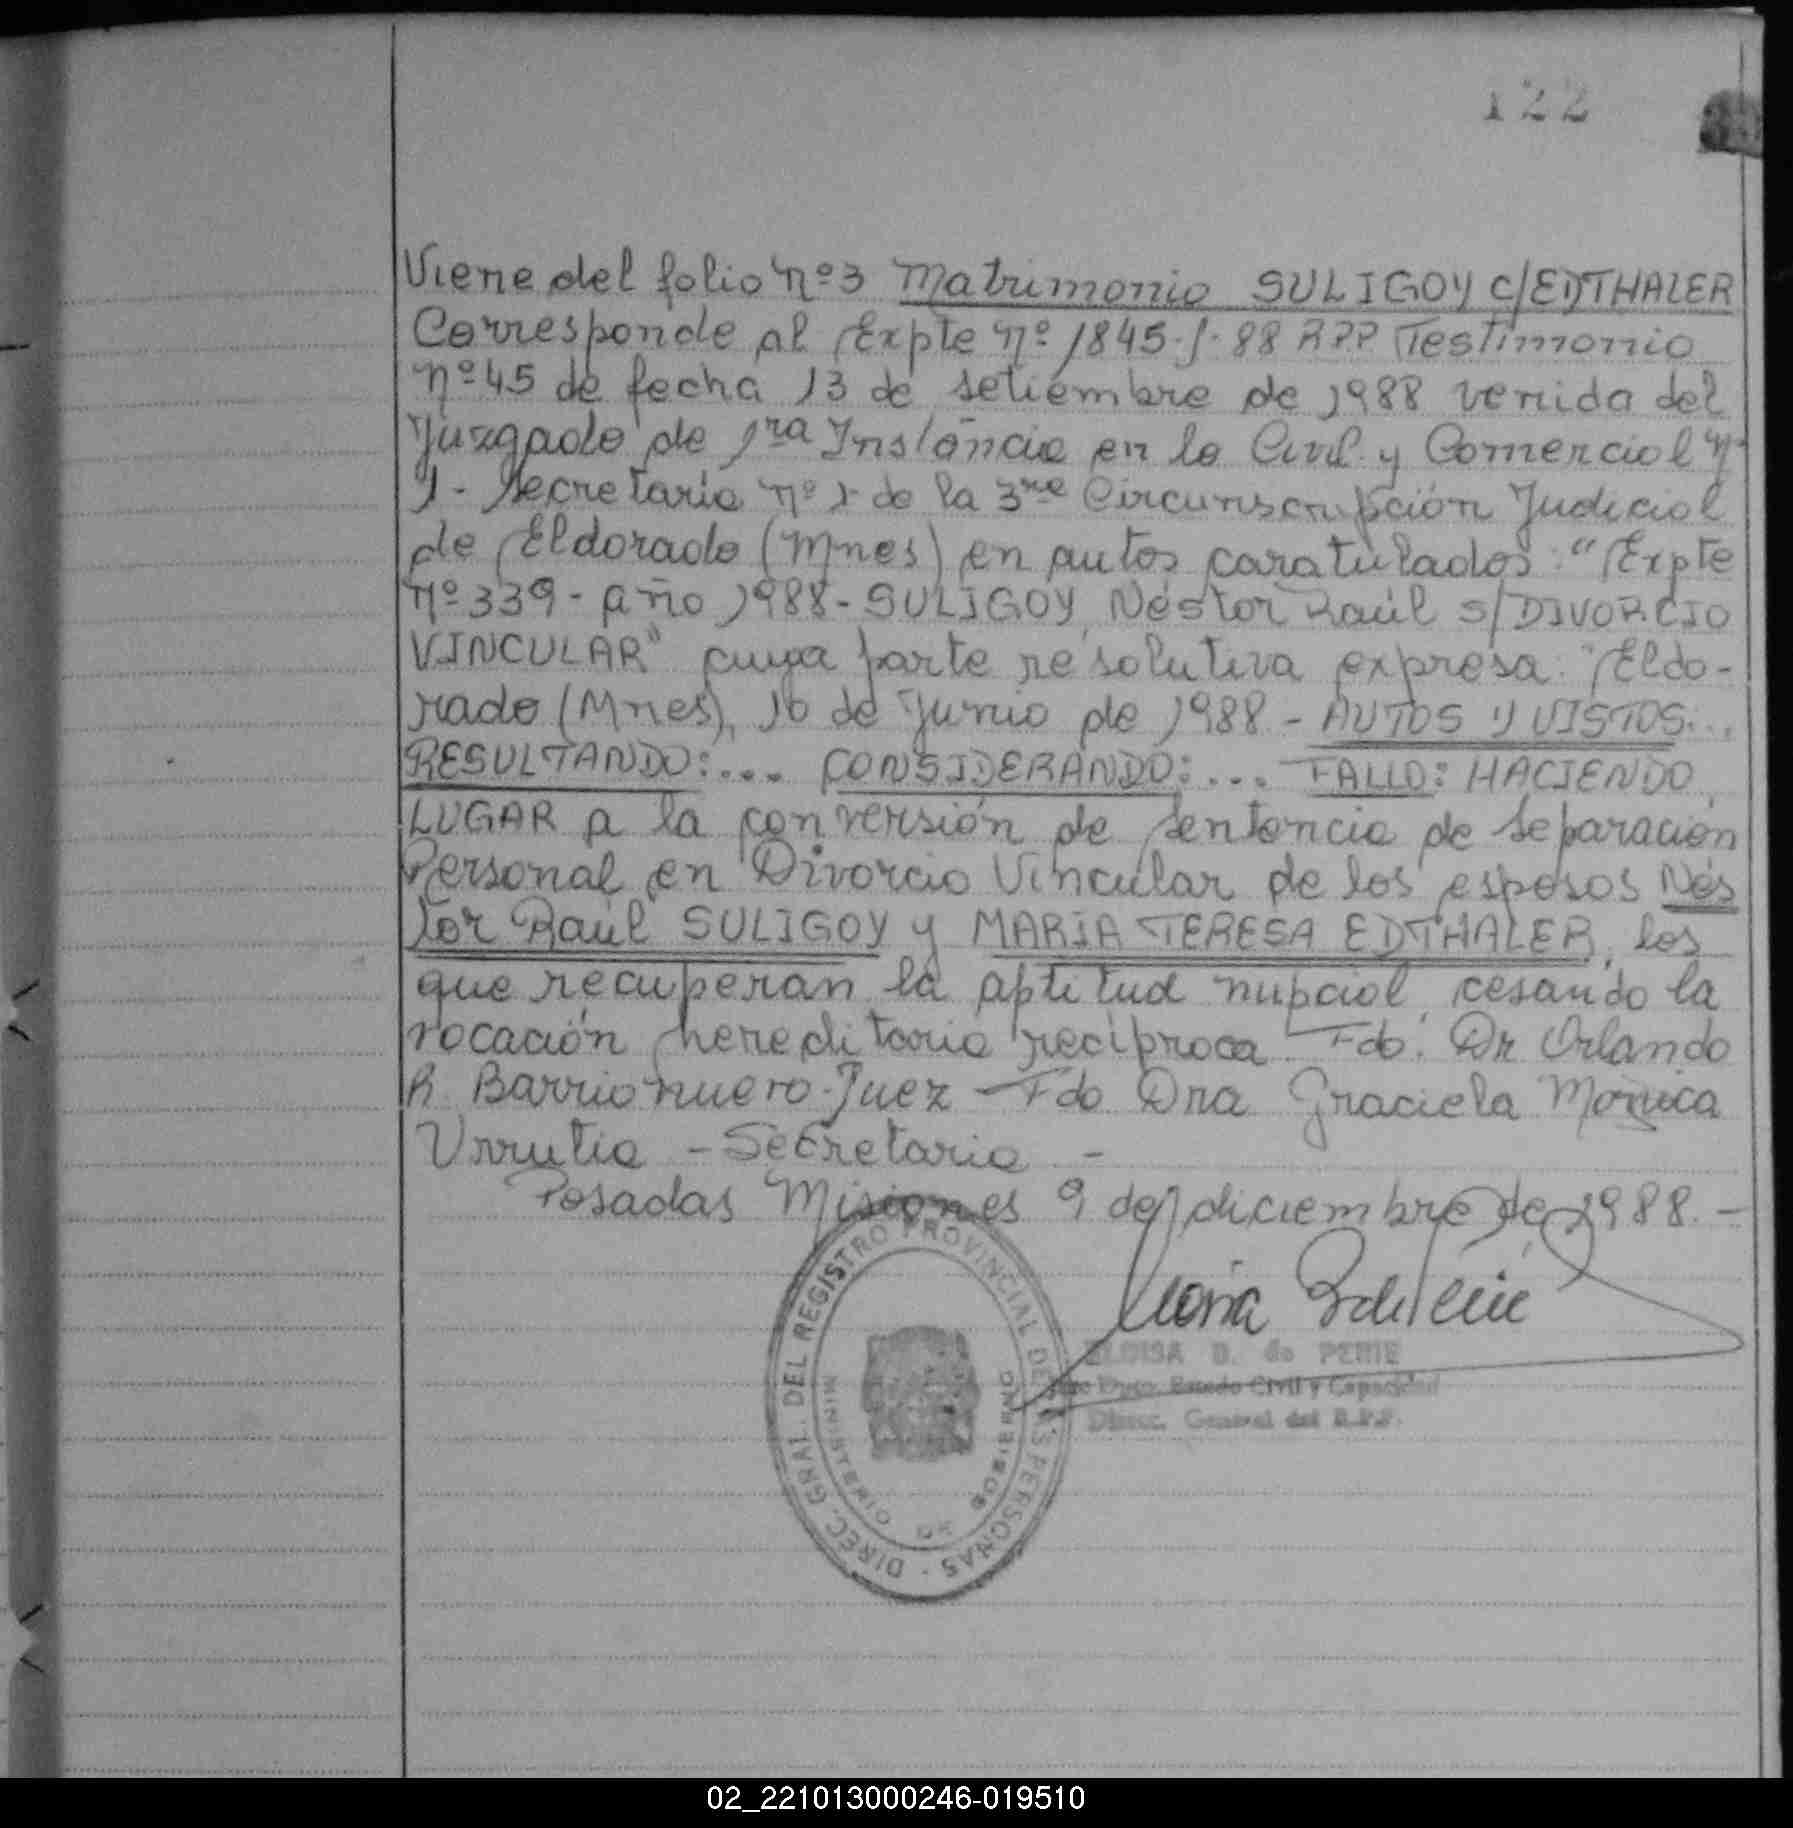 122
Viene del folio Nº3 Matrimonio SULIGOY C/EDTHALER
Corresponde al Expte Nº 1845-S-88 RPP Testimonio
Nº 45 de fecha 13 de setiembre de 1988 venida del
Juzgado de 1ra Instancia en lo Civil y Comercial Nº
1- Secretaria Nº 1 de la 3ra Circunscripción Judicial
de Eldorado (Mnes) en autos caratulados: "Expte
Nº 339- año 1988- SULIGOY, Néstor Raúl S/DIVORCIO
VINCULAR" cuya parte resolutiva expresa: "Eldo-
rado (Mnes), 16 de Junio de 1988 - AUTOS Y VISTOS:...
RESULTANDO:.... CONSIDERANDO:... FALLO: HACIENDO
LUGAR a la conversión de sentencia de separación
Personal en Divorcio Vincular de los esposos Nés
tor Raúl SULIGOY y MARIA TERESA EDTHALER, los
que recuperan la aptitud nupcial, cesando la
vocación hereditaria recíproca. Fdo. Dr Orlando
R. Barrionuevo-Juez - Fdo Dra Graciela Mónica
Urrutia - Secretaria -
Posadas Misiones 9 de diciembre de 1988.-
DIREC. GRAL. DEL REGISTRO PROVINCIAL DE LAS PERSONAS -
MINISTERIO DE GOBIERNO
ELOISA B. de PERIE
Dpto. Estado Civil y Capacidad
Direc. General del R.P.P.
02_221013000246-019510